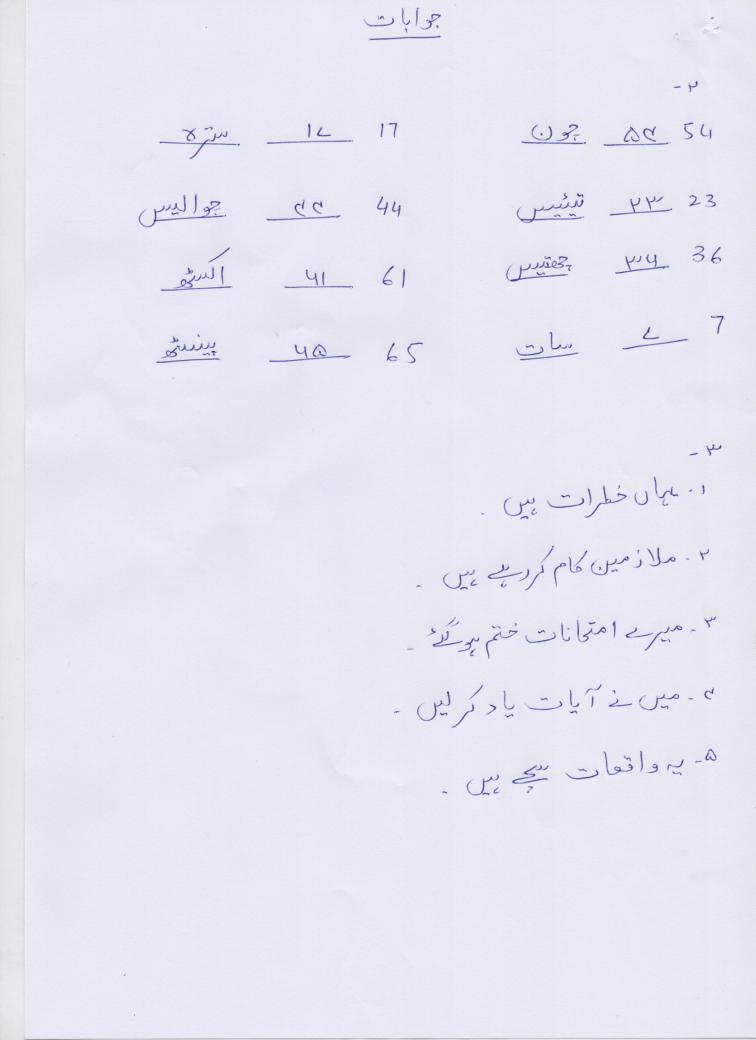 جوابات
۲-
54 ۵۴ چون 17 ۱۷ سترہ
23 ۲۳ تیئیس 44 ۴۴ چوالیس
36 ۳۶ چھتیس 61 ۶۱ اکسٹھ
7 ۷ سات 65 ۶۵ پینسٹھ
۳-
۱. یہاں خطرات ہیں۔
۲۔ ملازمین کام کررہے ہیں۔
۳۔ میرے امتحانات ختم ہوگئے۔
۴۔ میں نے آیات یاد کرلیں۔
۵۔ یہ واقعات سچے ہیں۔